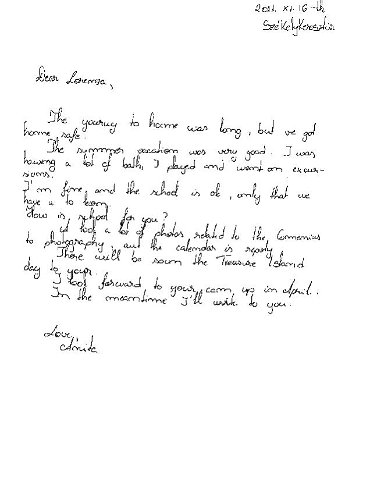 2011. XI. 16-th
Székelykeresztúr
Dear Lorenza,
The yourny to home was long, but we got
home safe.
The summer vacation was very good. I was
haweing a lot of bath, I played and went on excur-
sions.
I'm fine, and the school is ok, only that we
have a to learn.
How is, school for you?
I took a lot of photos related to the Comenius
to photography, and the calendar is ready.
There will be soun the Treasure Island
day to your.
I look forward to your up in April.
In the meantime I'll write to you.
Love,